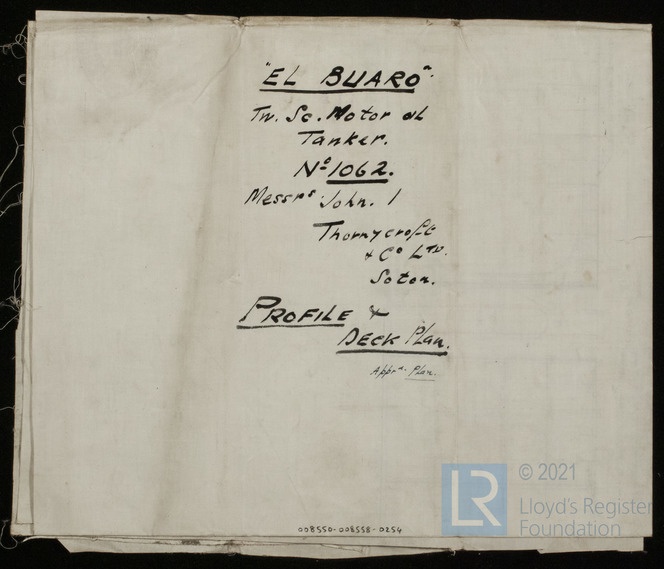 "EL BUARO"
Tw. Sc. Motor Oil
Tanker.
Nº 1062.
Messrs John. I
Thornycroft
& Co LTD.
Soton.
PROFILE &
DECK Plan.
Apprd. Plan.
008550-008558-0254
LR
© 2021
Lloyd's Register
Foundation